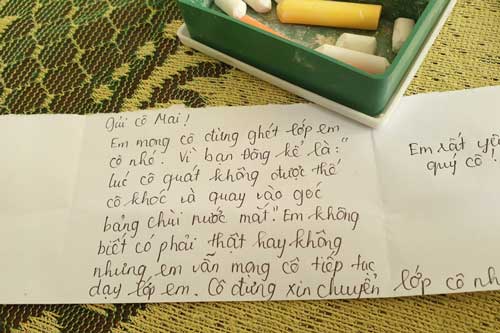 Gửi cô Mai!
Em mong cô đừng ghét lớp em
cô nhé. Vì bạn Đông kể là: "
lúc cô quát không được thế
cô khóc và quay vào goc
bảng chùi nước mắt". Em không
biết có phải thật hay không
nhưng em vẫn mong cô tiếp tục
dạy lớp em. Cô đừng xin chuyển lớp cô nh
Em rất yê
quý cô!